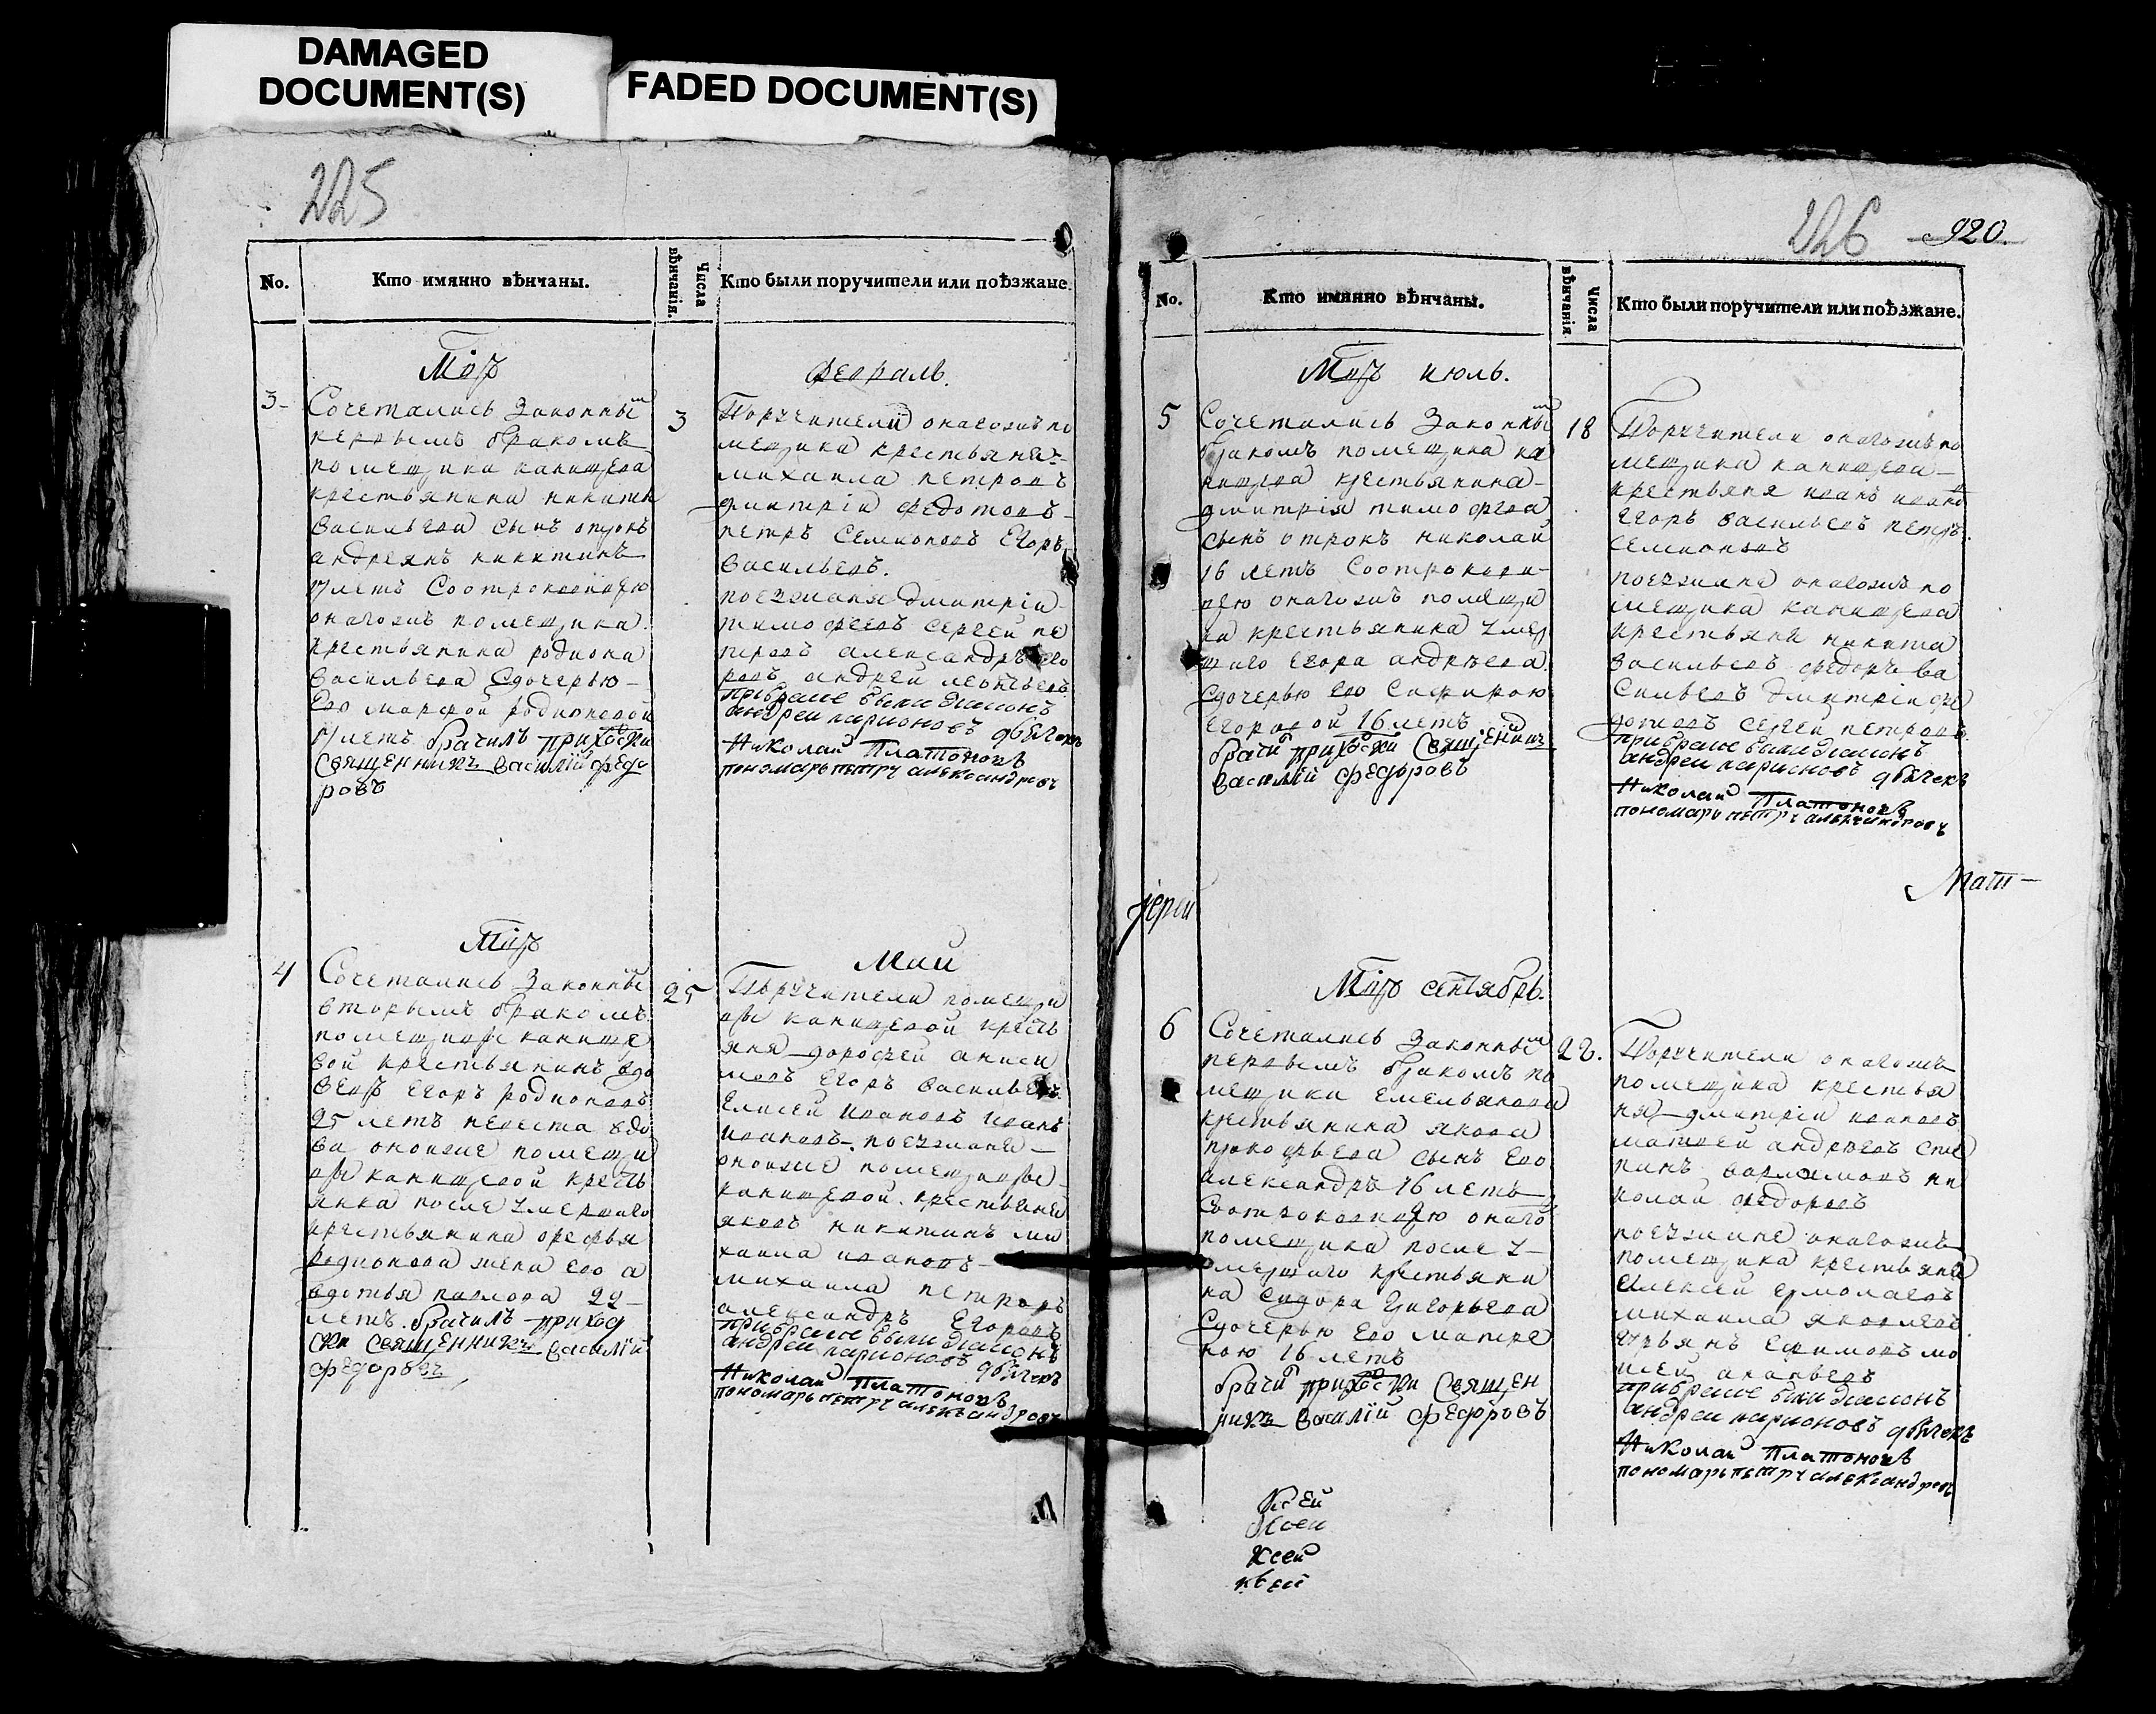 DAMAGED
DOCUMENT(S)
FADED DOCUMENT(S)
225
No.
Кто имянно вѣнчаны.
Числа
вѣнчанія.
Кто были поручители или поѣзжане.
Мцъ
февраль.
3
Сочетались Законнымъ
первымъ бракомъ
помещика канищева
крестьянина никиты
васильева сынъ отрокъ
андреянъ никитинъ
17 летъ Соотроковицею
онагожъ помещика
крестьянина родиона
васильева Сдочерью
Его марфой родионовой
17 летъ брачилъ приходски
священникъ василiй федо
ровъ
3
Поручители онагожъ по
мещика крестьяня
михаила петровъ
дмитрiи федотовъ
петръ Семионовъ Егоръ
васильевъ.
поезжаня дмитрiи
тимофеевъ сергей пе
тровъ александръ его
ровъ андрей леонтьевъ
прибраке были диаконъ
андреи ларионовъ дьячекъ
Николаи Платоновъ
пономарь петръ александровъ
Мцъ
Май
4
Сочетались Законнымъ
вторымъ бракомъ
помещицы канище
вой крестьянинъ вдо
вецъ Егоръ родионовъ
25 летъ невеста вдо
ва оноиже помещи
цы канищевой кресть
янка после умершаго
крестьянина орефья
родионова жена его а
вдотья павлова 22
летъ. брачилъ приход
ски священникъ василiй
федоровъ
25
Поручители помещи
цы канищевой кресть
яня дорофей аниси
мовъ Егоръ васильевъ
Елисей ивановъ иванъ
ивановъ поезжаня
оноиже помещицы
канищевой крестьяне
яковъ никитинъ ми
хаила ивановъ
михаила петровъ
александръ Егоровъ
прибраке были диаконъ
андреи ларионовъ дьячекъ
Николаи Платоновъ
пономарь петръ александровъ
226
920
No.
Кто имянно вѣнчаны.
Числа
вѣнчанія
Кто были поручители или поѣзжане.
Мцъ июль.
5
Сочетались Законнымъ
бракомъ помещика ка
нищева крестьянина
дмитрiя тимофеева
сынъ отрокъ николай
16 летъ Соотрокови
цею онагожъ помещи
ка крестьянина умер
шаго Егора андреева
Сдочерью его
Егоровой 16 летъ
брачи приходски Священикъ
василiй федоровъ
18
Поручители онагожъ по
мещика канищева
крестьяня иванъ ивановъ
Егоръ васильевъ петръ
семионовъ
поезжаня онагожъ по
мещика канищева
крестьяня никита
васильевъ федоръ ва
сильевъ дмитрiи фе
дотовъ сергей петровъ
прибраке были диаконъ
андреи ларионовъ дьячекъ
Николаи Платоновъ
пономарь петръ александровъ
Мат
iереи
Мцъ сентябрь.
6
Сочетались Законнымъ
первымъ бракомъ по
мещика Емельянова
крестьянина якова
прокофьева сынъ его
александръ 16 летъ
Соотроковицею онаго
помещика после у
мершаго крестьяни
на Сидора Григорьева
Сдочерью его матре
ною 16 летъ
брачи приходски Священ
никъ василiй федоровъ
22.
Поручители онагожъ
помещика крестья
ня дмитрiи ивановъ
матвей андреевъ сте
панъ варламовъ ни
колай федоровъ
поезжане онагожъ
помещика крестьяне
Алексей Ермолаевъ
михаила яковлевъ
Ефимовъ мо
исей
прибраке были диаконъ
андреи ларионовъ дьячекъ
Николаи Платоновъ
пономарь петръ александровъ
ксей